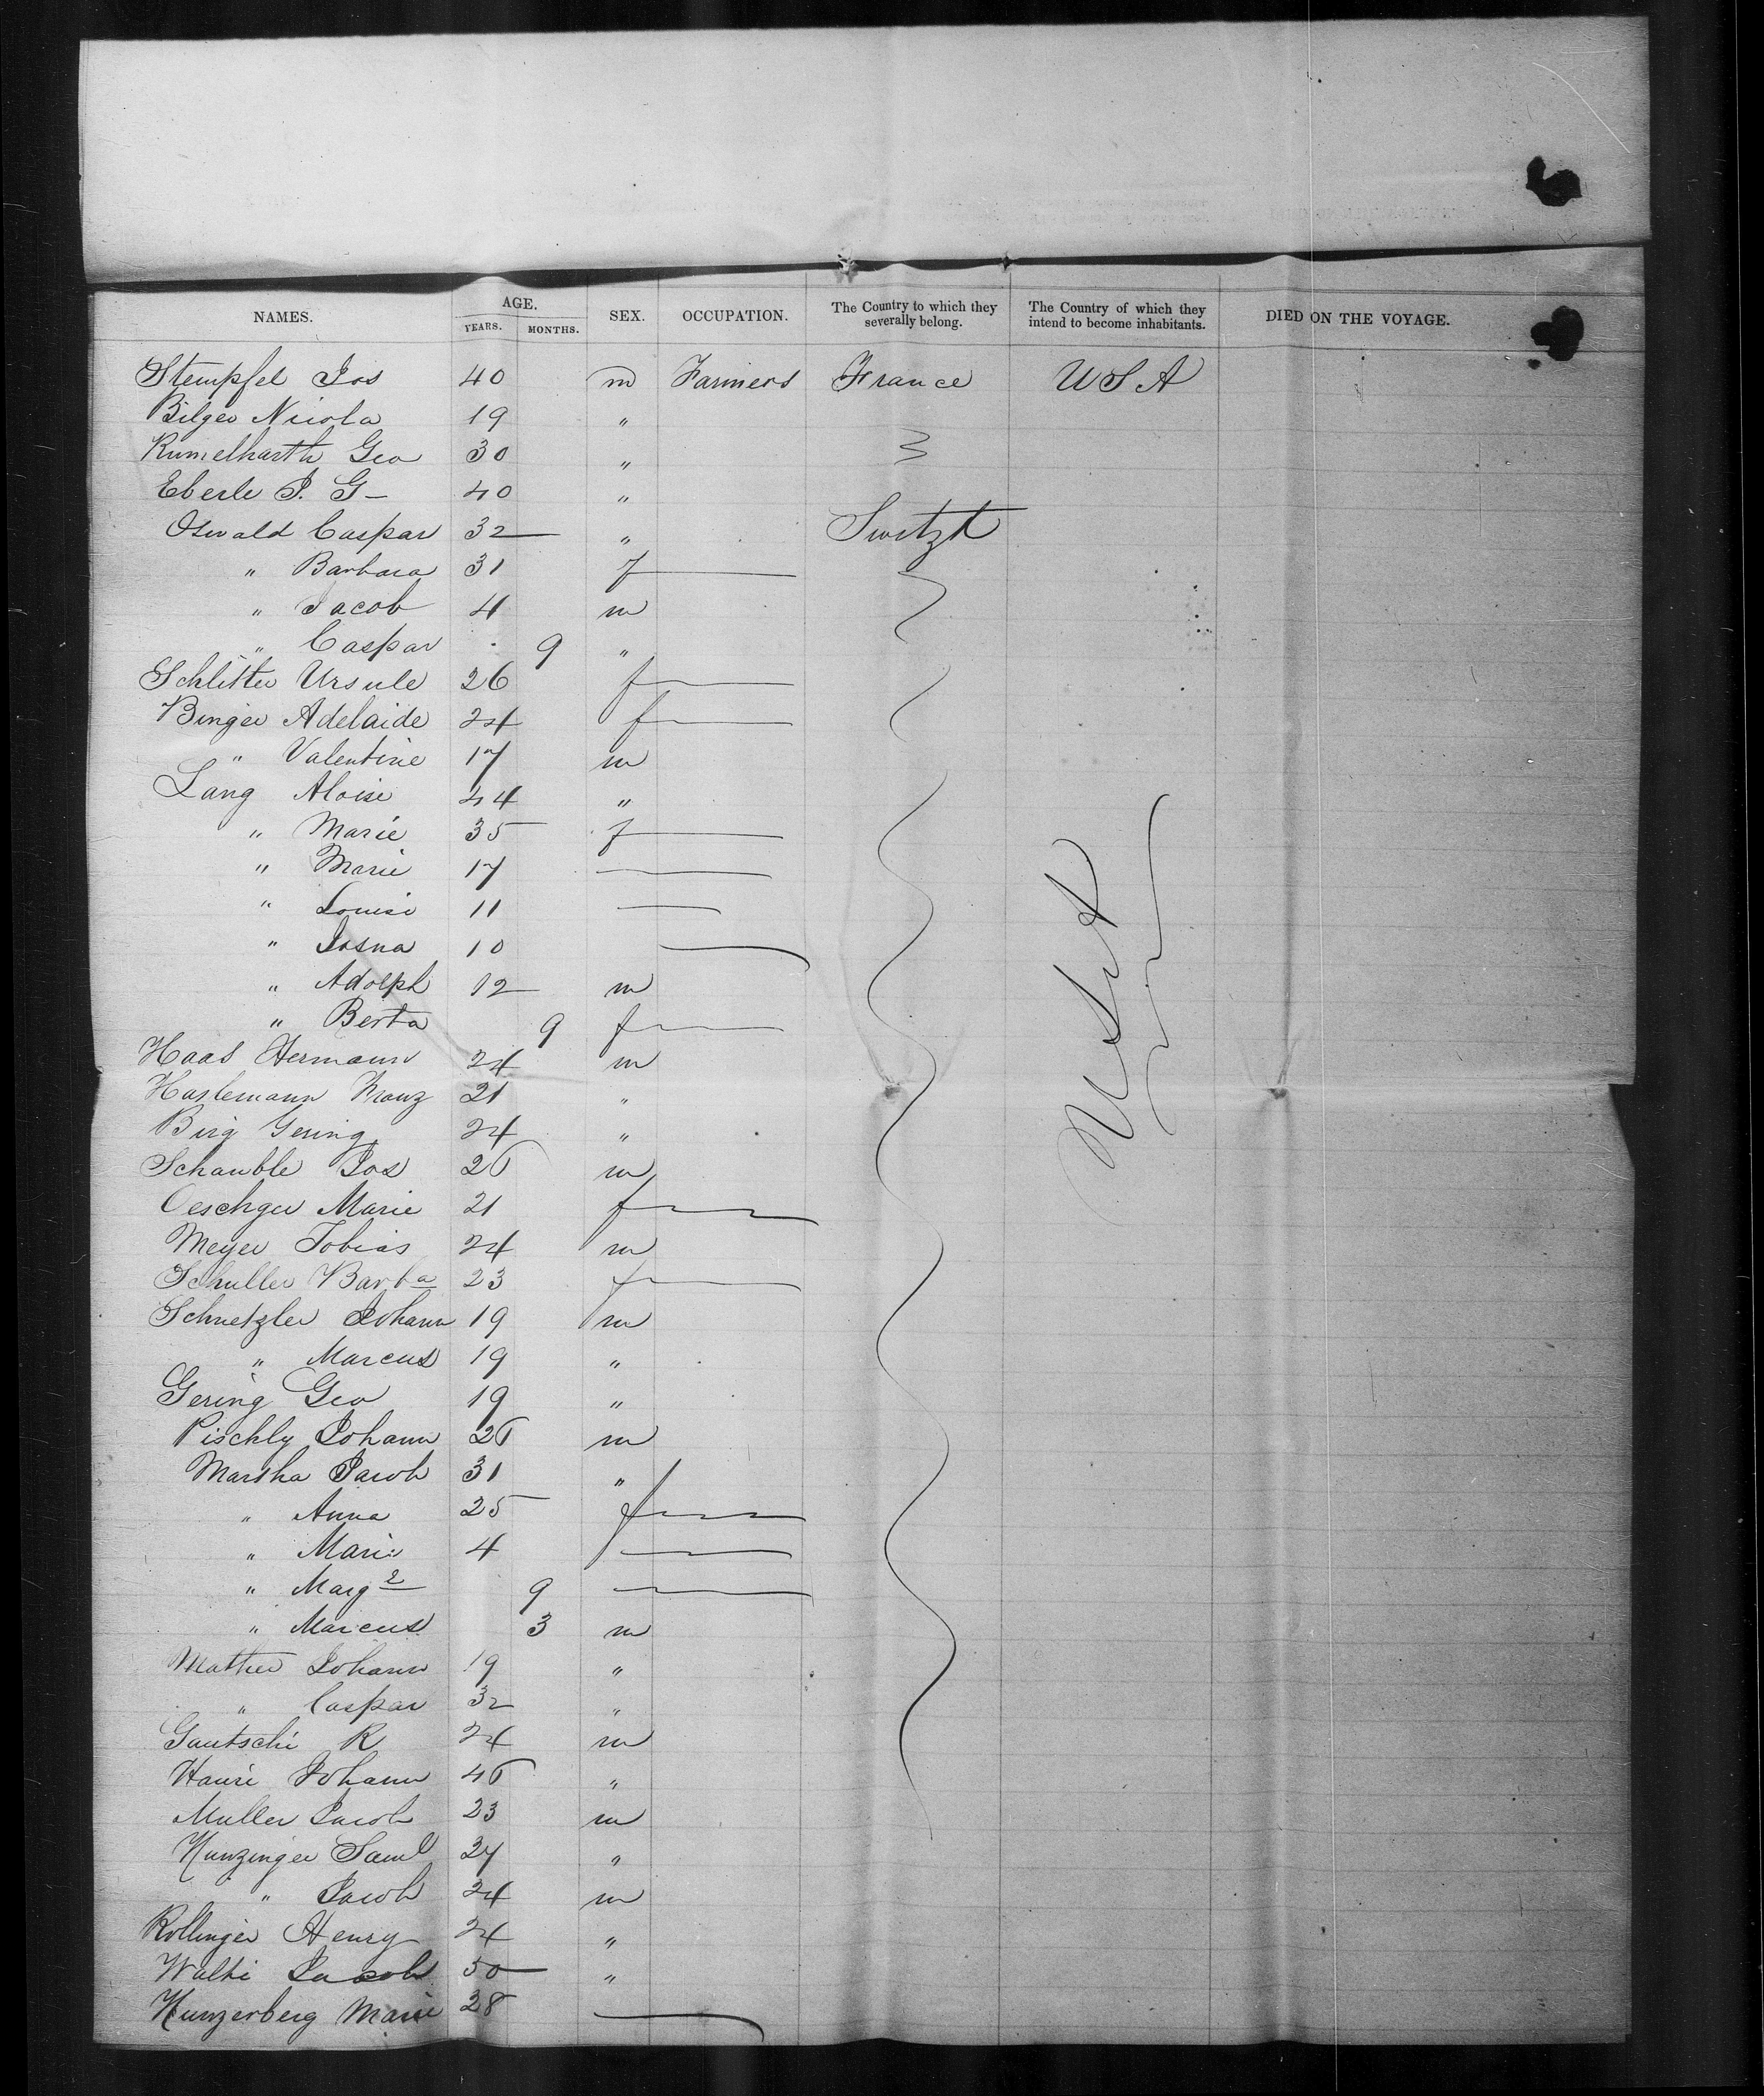 NAMES. AGE. SEX. OCCUPATION. The Country to which they severally belong. The Country of which they intend to become inhabitants. DIED ON THE VOYAGE.
YEARS. MONTHS.
Stempfel Jos 40 m Farmers France USA
Bilger Nicola 19 "
Rumelharth Geo 30 "
Eberle J. G - 40 "
Oswald Caspar 32 " Switzt
" Barbara 31 f
" Jacob 4 m
" Caspar 9 "
Schlitter Ursule 26 f
Binger Adelaide 24 f
" Valentine 17 m
Lang Aloise 44 "
" Marie 35 f
" Marie 17
" Louise 11
" 10
" Adolph 12 m
" Berta 9 f
Haas Hermann 24 m
Haslemann Franz 21 "
Birg Gering 24 "
Schauble Jos 26 m
Oeschger Marie 21 f
Meyer Tobias 24 m
Schuller Barba 23 f
Schnetzler Johann 19 m
" Marcus 19 "
Gering Geo 19 "
Pischly Johann 26 m
Marsha Jacob 31 "
" Anna 25 f
" Marie 4
" Marg 9
" Marcus 3 m
Mather Johann 19 "
" Caspar 32 "
Gautschi R 24 m
Hauri Johann 46 "
Muller Jacob 23 m
Kunzinger Saml 27 "
" Jacob 24 m
Rollinger Henry 24 "
Walti Jacob 50 "
Hunzerberg Marie 28
USA